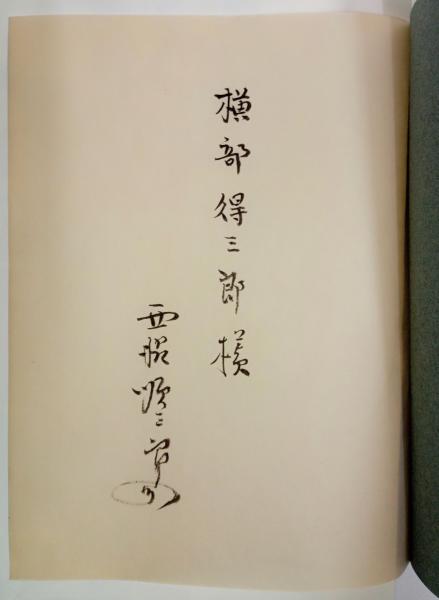 横部得三郎様
西脇順三郎